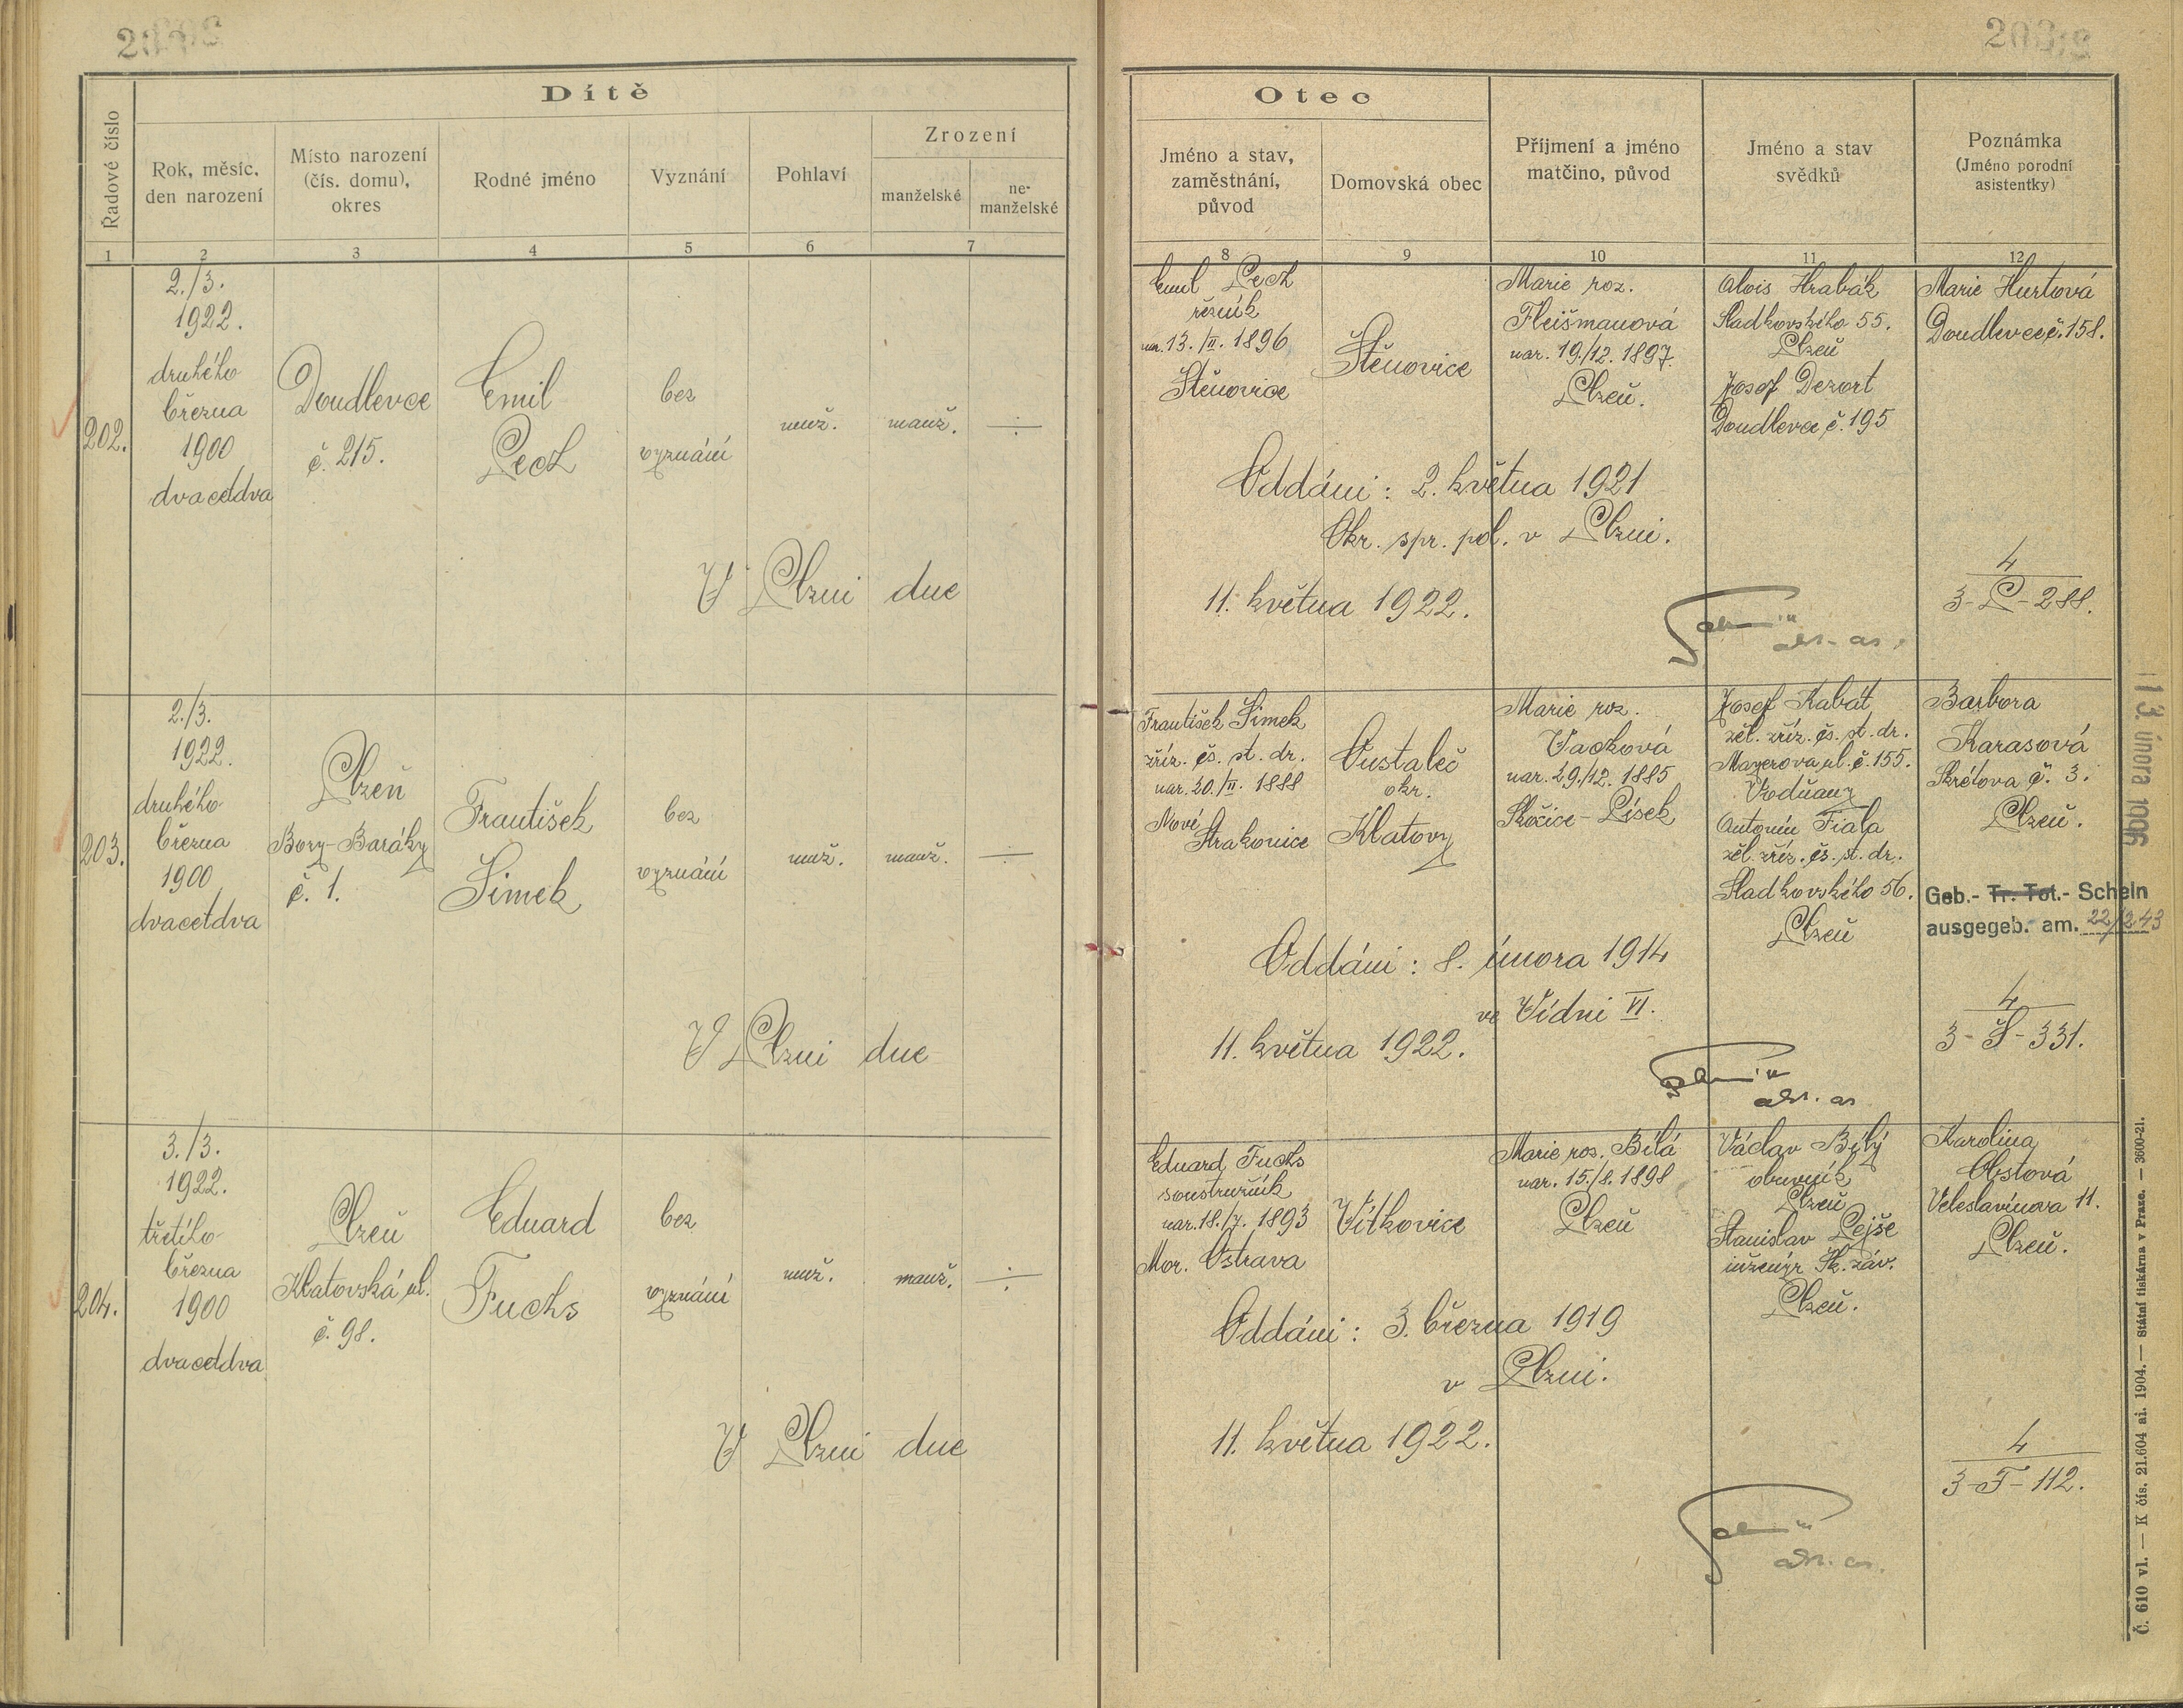 Dítě
Řadové číslo
Rok, měsíc,
den narození
Místo narození
(čís. domu),
okres
Rodné jméno
Vyznání
Pohlaví
Zrození
manželské
ne-
manželské
1 2 3 4 5 6 7
202.
2./3.
1922.
druhého
března
1900
dvacetdva
Doudlevce
č. 215.
Emil
Pech
bez
vyznání
muž.
manž.
V Plzni dne
203.
2./3.
1922.
druhého
března
1900
dvacetdva
Plzeň
Bory-Baráky
č. 1.
František
Šimek
bez
vyznání
muž.
manž.
V Plzni dne
204.
3./3.
1922.
třetího
března
1900
dvacetdva
Plzeň
Klatovská ul.
č. 98.
Eduard
Fuchs
bez
vyznání
muž.
manž.
V Plzni dne
Otec
Jméno a stav,
zaměstnání,
původ
Domovská obec
Příjmení a jméno
matčino, původ
Jméno a stav
svědků
Poznámka
(Jméno porodní
asistentky)
8 9 10 11 12
Emil Pech
řezník
nar. 13./II. 1896
Štěnovice
Štěnovice
Marie roz.
Fleišmanová
nar. 19./12. 1897.
Plzeň.
Alois Hrabák
Sladkovského 55.
Plzeň
Josef Dezort
Doudlevce č. 195
Marie Hurtová
Doudlevce č. 158.
Oddáni: 2. května 1921
Okr. spr. pol. v Plzni.
11. května 1922.
4
3-P-288.
František Šimek
zříz. čs. st. dr.
nar. 20./II. 1888
Nové
Strakonice
okr.
Klatovy
Marie roz.
Vacková
nar. 29./12. 1885
Skočice-Písek
Josef Kabát
žel. zříz. čs. st. dr.
Mayerova ul. č. 155.
Vodňany
Antonín Fiala
žel. zříz. čs. st. dr.
Sladkovského 56.
Plzeň
Barbora
Karasová
Skrétova č. 3.
Plzeň.
Geb.- Tr. Tot.- Schein
ausgegeb. am. 22/2 43
Oddáni: 8. února 1914
ve Vídni VI.
11. května 1922.
4
3-Š-331.
Eduard Fuchs
soustružník
nar. 18./7. 1893
Mor. Ostrava
Vítkovice
Marie roz. Bílá
nar. 15./8. 1898
Plzeň
Václav Bílý
obuvník
Plzeň
Stanislav Lejše
inženýr Šk. záv.
Plzeň.
Karolina
Obstová
Veleslavínova 11.
Plzeň.
Oddáni: 3. března 1919
v Plzni.
11. května 1922.
4
3-F-112.
Č. 610 vl. — K čís. 21.604 ai. 1904. — Státní tiskárna v Praze. — 3600-21.